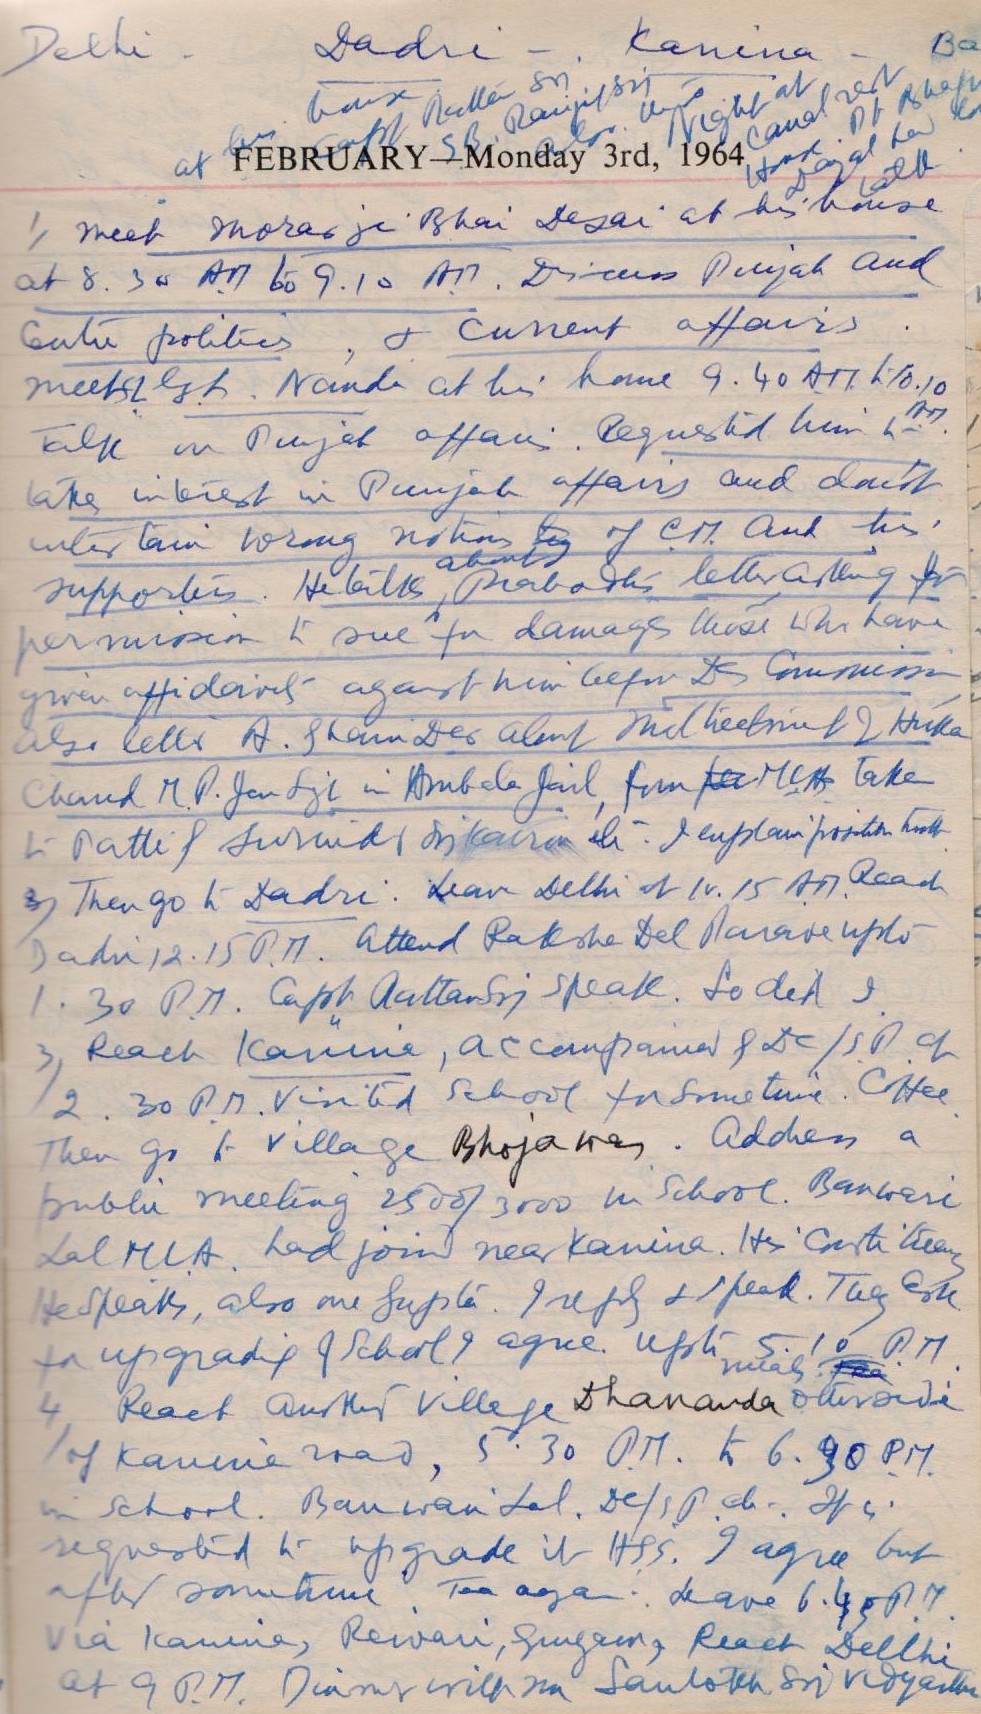 Delhi - Dadri - Kanina - Ba
house Rattan Sri Ranjit Sri Night at Canal rest
at Capt House Dayal
FEBRUARY—Monday 3rd, 1964
1, meet Morarji Bhai Desai at his house
at 8.30 AM to 9.10 AM. Discuss Punjab and
Centre politics, & Current affairs.
meet Nanda at his home 9.40 AM to 10.10
AM.
Talk on Punjab affairs. Requested him to
take interest in Punjab affairs and don't
intertain wrong notions of C.M. and his
supporters. He talks about Prabodh's letter asking for
permission to sue for damages those who have
given affidavits against him before Das Commission
also letter A. Ghani Dar about Illtreatment of Hukam
Chand M.P. Jan Sgh in Ambala Jail, from MLAs take
to Patti of Surinder Sri Kairon etc. I explain position truth
2, Then go to Dadri. Leave Delhi at 10.15 AM. Reach
Dadri 12.15 P.M. Attend Raksha Dal Parade upto
1.30 P.M. Capt Rattan Sri speak. So did I
3, Reach Kanina, accompanied by DC/S.P. at
2.30 P.M. Visited School for sometime. Coffee.
Then go to Village Bhojawas. Address a
public meeting 2500/3000 in School. Banwari
Lal MLA. had join near Kanina. His Constituency
He speaks, also one Gupta. I reply & speak. They ask
for upgrading of School I agree. upto 5.10 P.M.
meals
4, Reach Another Village Dhananda otherside
of Kanina road, 5.30 P.M. to 6.30 P.M.
in School. Banwari Lal. DC/S.P. etc. It is
requested to upgrade it HSS. I agree but
after sometime. Tea again. Leave 6.40 P.M.
Via Kanina, Rewari, Gurgaon, Reach Dellhi
at 9 P.M. Dinner with Santokh Sri Vidyarthi